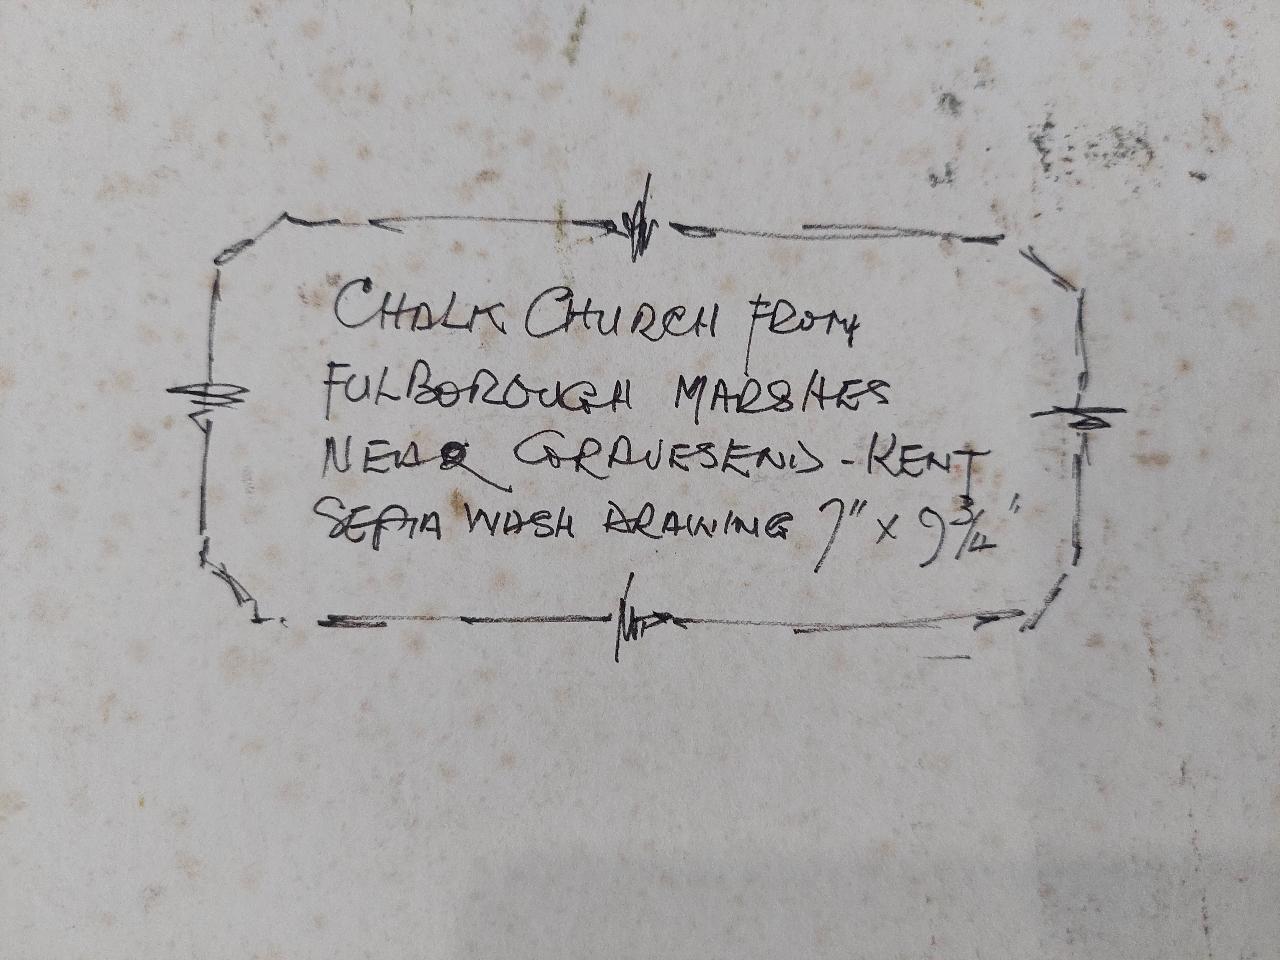 CHALK CHURCH FROM
FULBOROUGH MARSHES
NEAR GRAVESEND - KENT
SEPIA WASH DRAWING 7" x 9 3/4"